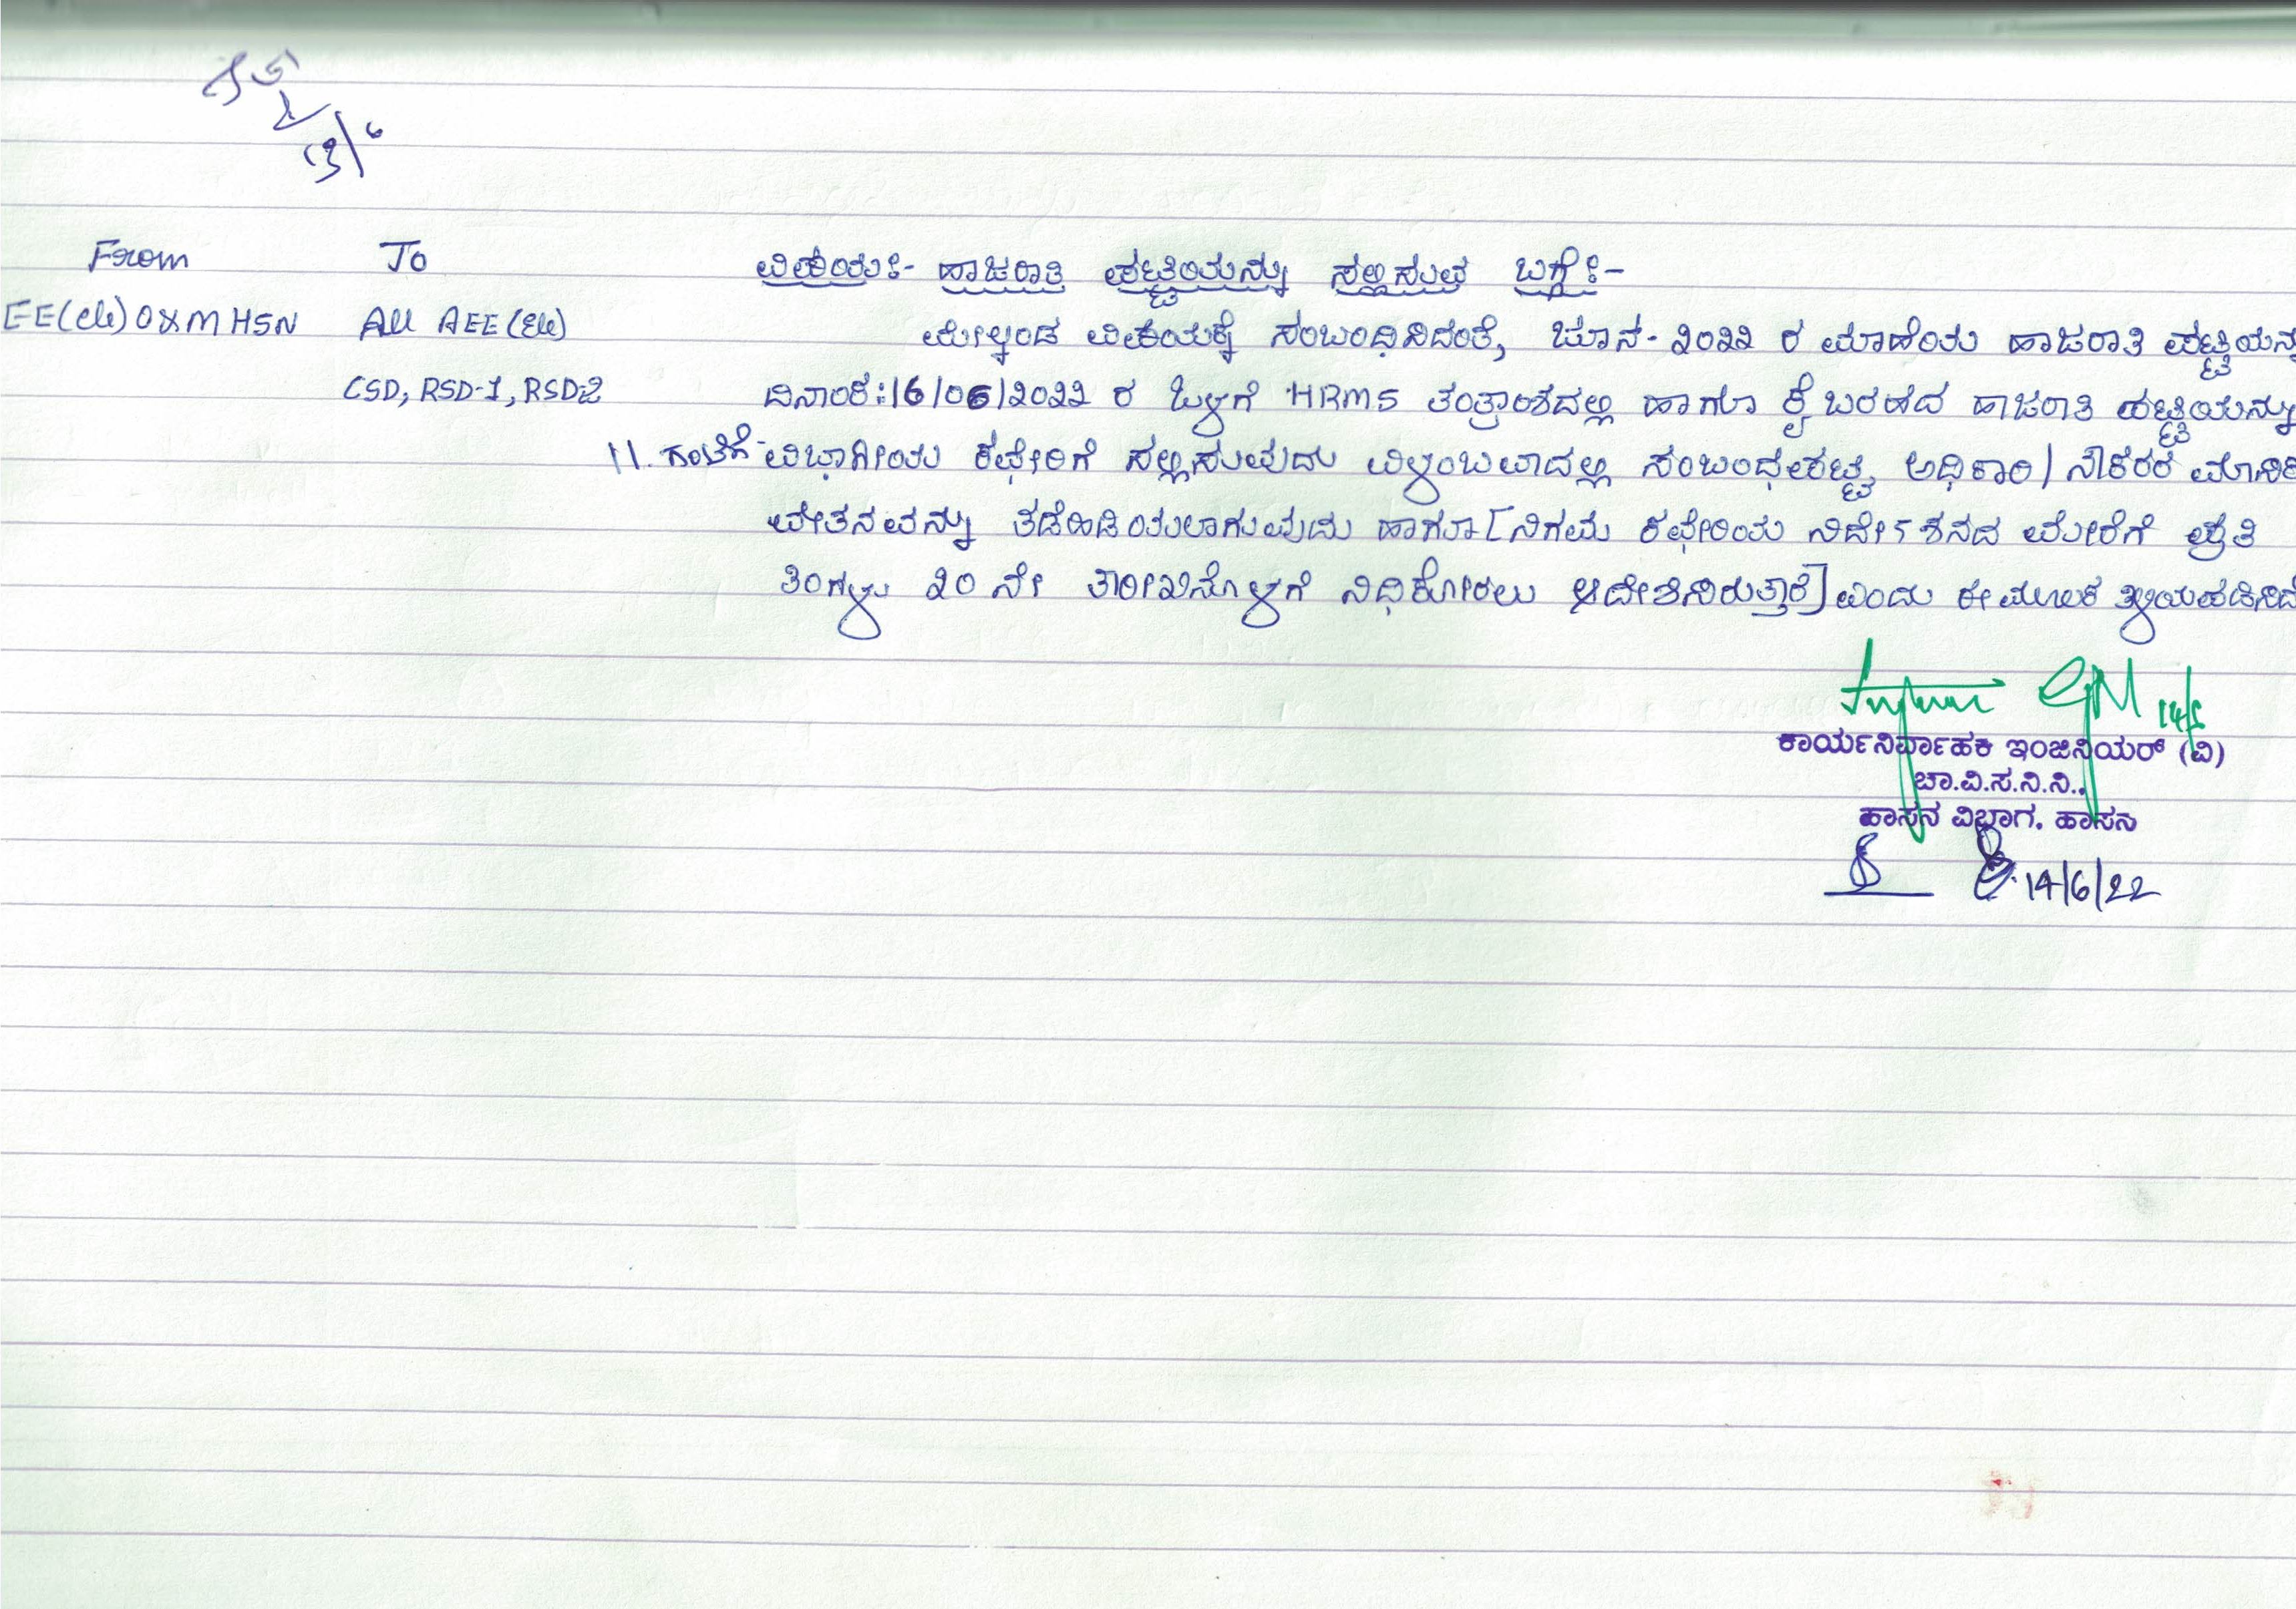 From To ವಿಷಯ:- ಹಾಜರಾತಿ ಪಟ್ಟಿಯನ್ನು ಸಲ್ಲಿಸುವ ಬಗ್ಗೆ:-
EE(ele) O&M HSN All AEE(Ele) ಮೇಲ್ಕಂಡ ವಿಷಯಕ್ಕೆ ಸಂಬಂಧಿಸಿದಂತೆ, ಜೂನ್-೨೦೨೨ ರ ಮಾಹೆಯ ಹಾಜರಾತಿ ಪಟ್ಟಿಯನ್ನು
CSD, RSD-1, RSD-2 ದಿನಾಂಕ:16/06/೨೦೨೨ ರ ಒಳಗೆ HRMS ತಂತ್ರಾಂಶದಲ್ಲಿ ಹಾಗೂ ಕೈ ಬರಹದ ಹಾಜರಾತಿ ಪಟ್ಟಿಯನ್ನು
11. ಗಂಟೆಗೆ ವಿಭಾಗೀಯ ಕಛೇರಿಗೆ ಸಲ್ಲಿಸುವುದು ವಿಳಂಬವಾದಲ್ಲಿ ಸಂಬಂಧಪಟ್ಟ ಅಧಿಕಾರಿ/ನೌಕರರ ಮಾಸಿಕ
ವೇತನವನ್ನು ತಡೆಹಿಡಿಯಲಾಗುವುದು ಹಾಗೂ [ನಿಗಮ ಕಛೇರಿಯ ನಿರ್ದೇಶನದ ಮೇರೆಗೆ ಪ್ರತಿ
ತಿಂಗಳು ೨೦ ನೇ ತಾರೀಖಿನೊಳಗೆ ನಿಧಿಕೋರಲು ಆದೇಶಿಸಿರುತ್ತಾರೆ] ಎಂದು ಈ ಮೂಲಕ ತಿಳಿಯಪಡಿಸಿದೆ
ಕಾರ್ಯನಿರ್ವಾಹಕ ಇಂಜಿನಿಯರ್ (ವಿ)
ಚಾ.ವಿ.ಸ.ನಿ.ನಿ.,
ಹಾಸನ ವಿಭಾಗ. ಹಾಸನ
14/6/22